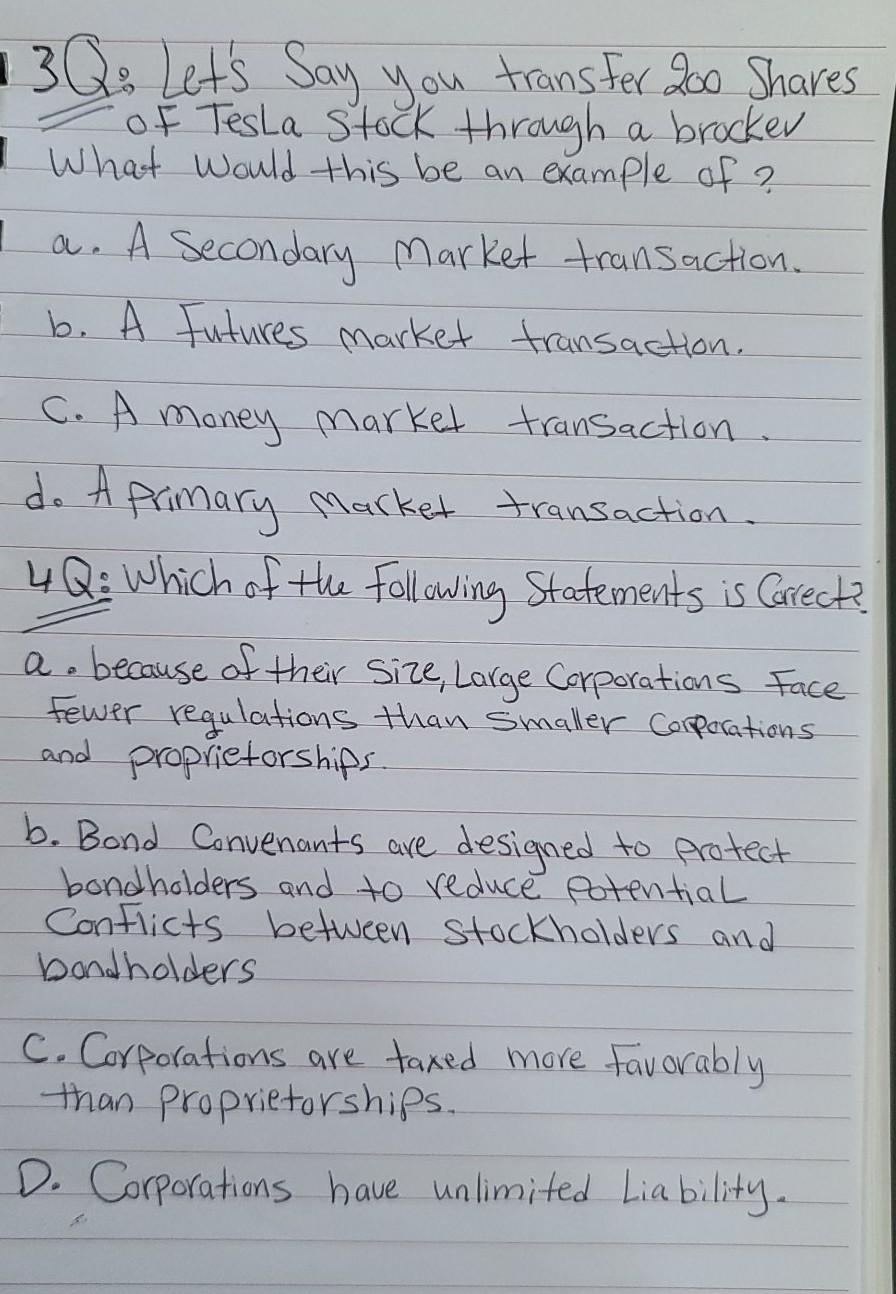 3Q: Let's Say you transfer 200 Shares
of Tesla Stock through a brocker
What Would this be an example of?
a. A Secondary Market transaction.
b. A Futures Market transaction.
C. A money Market transaction.
d. A Primary Market transaction.
4Q: Which of the Following Statements is Correct?
a. because of their Size, Large Corporations Face
Fewer regulations than Smaller Corporations
and proprietorships.
b. Bond Convenants are designed to Protect
bondholders and to reduce Potential
Conflicts between Stockholders and
bondholders
C. Corporations are taxed more Favorably
than Proprietorships.
D. Corporations have unlimited Liability.